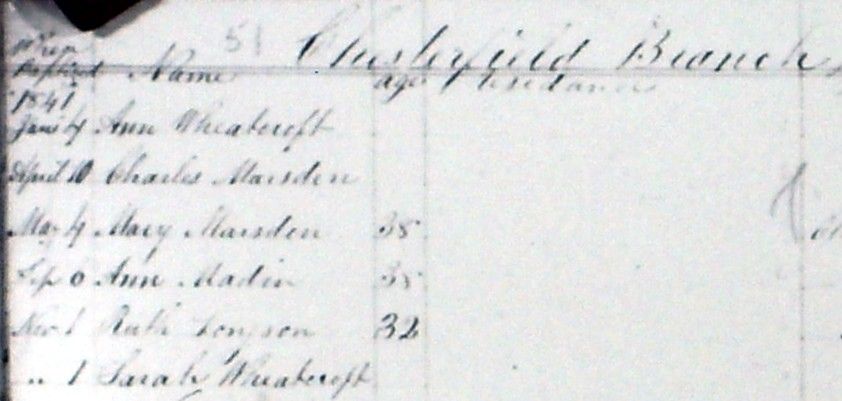 51 Chesterfield Branch
When
Baptized Name age Residance
1841
Ann Wheatcroft
April 10 Charles Marsden
May 4 Mary Marsden 38
Sep 6 Ann Madin 38
Nov 1 Ruth Longson 32
" 1 Sarah Wheatcroft